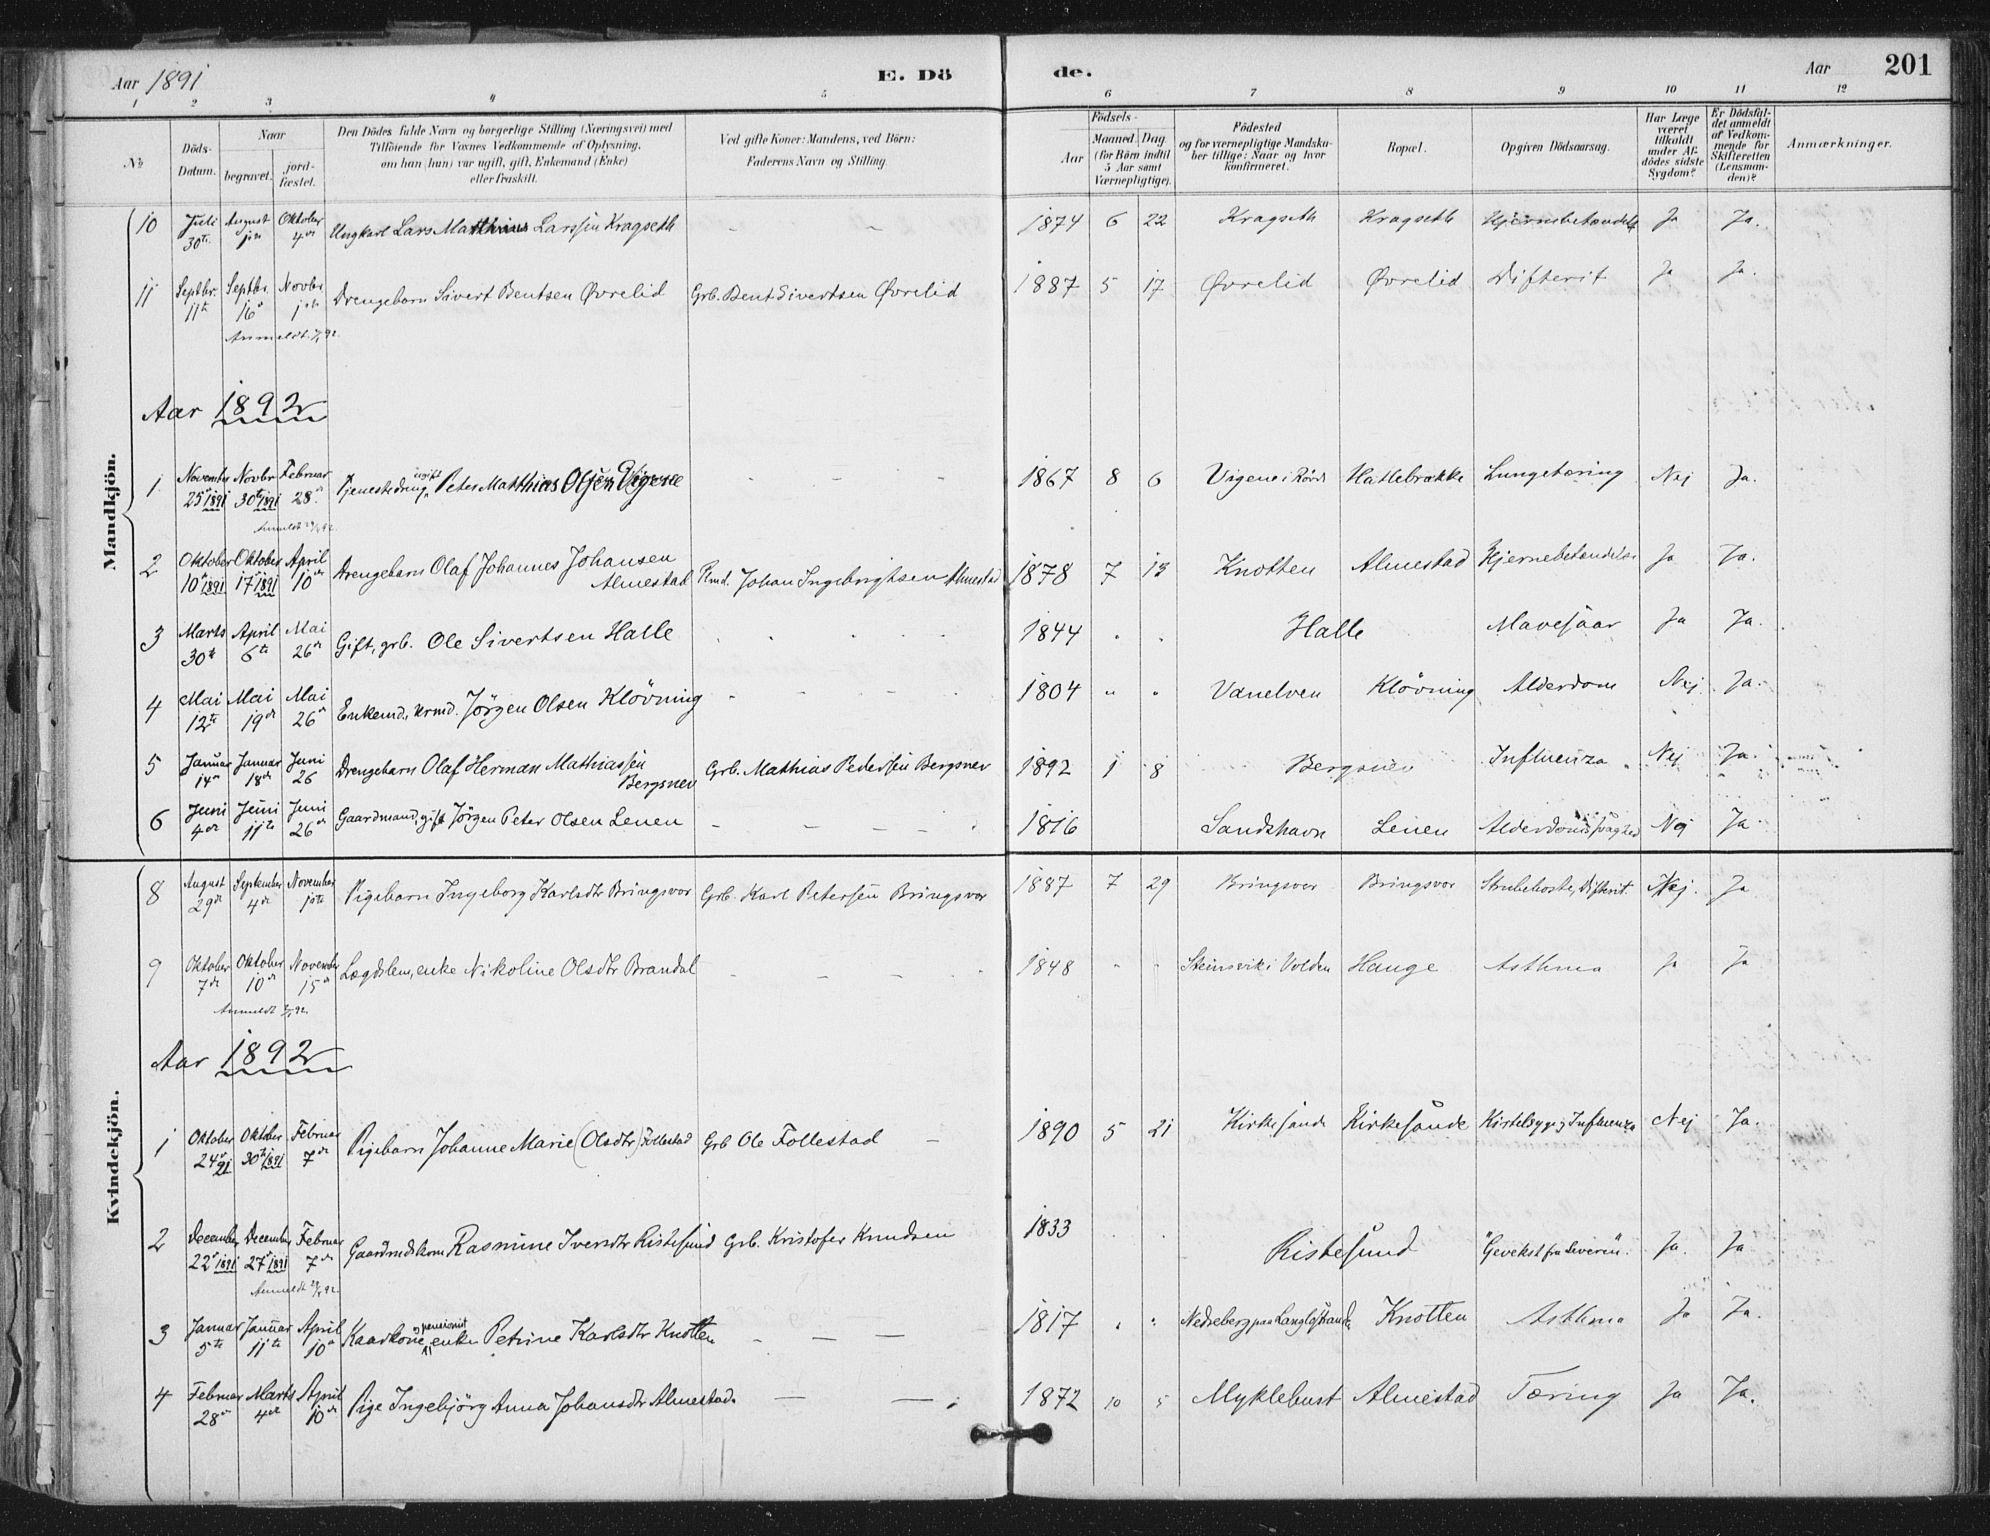 Aar 1891 E. Dö de. Aar 201
1 2 3 4 5 6 7 8 9 10 11 12
No Döds-Datum. Naar begravet. jord-fæstet. Den Dödes fulde Navn og borgerlige Stilling (Næringsvei) med Tilföiende for Voxnes Vedkommende af Oplysning, om han (hun) var ugift, gift, Enkemand (Enke) eller fraskilt. Ved gifte Koner: Mandens, ved Börn: Faderens Navn og Stilling. Aar Födsels- Maaned. Dag. (for Börn indtil 5 Aar samt Værnepligtige). Födested og for værnepligtige Mandskaber tillige: Naar og hvor konfirmeret. Bopæl. Opgiven Dödsaarsag. Har Læge været tilkaldt under Afdödes sidste Sygdom? Er Dödsfaldet anmeldt af Vedkommende for Skifteretten (Lensmanden)? Anmærkninger.
Mandkjön.
10 Juli 30te August Oktober 4de Ungkarl Lars Matthias Larssen Kragseth - - 1874 6 22 Kragseth Kragseth Hjernebetændelse Ja Ja.
11 Septbr. 11te Septbr. 16de Novbr 1ste Drengebarn Sivert Bentsen Övrelid Grb. Bent Sivertsen Övrelid 1887 5 17 Övrelid Övrelid Difterit Ja Ja.
Anmeldt
Aar 1892
1 November 25de 1891 Novbr 30te 1891 Februar 28de Tjenestedreng, ugift Peter Matthias Olsen Vigene - - - 1867 8 6 Vigene i Hatlebrække Lungetæring Nej Ja.
Anmeldt
2 Oktober 10de 1891 Oktober 17de 1891 April 10de Drengebarn Olaf Johannes Johansen Almestad Johan Ingebrigtsen Almestad 1878 7 13 Knotten Almestad Hjernebetændelse Ja Ja.
3 Marts 30te April 6te Mai 26de Gift, grb. Ole Sivertsen Halle 1844 " " Halle Mavesaar Ja Ja.
4 Mai 12te Mai 19de Mai 26de Enkemd., krmd. Jörgen Olsen Klövning - - - 1804 " " Vanelven Klövning Alderdom Nej Ja.
5 Januar 14de Januar 18de Juni 26 Drengebarn Olaf Herman Mathiassen Bergsnev Grb. Mathias Pedersen Bergsnev 1892 1 8 Bergsnev Influenza Nej Ja.
6 Juni 4de Juni 11te Juni 26de Gaardmand, gift Jörgen Peter Olsen Lenen - - - - 1816 Sandshavn Lenen Alderdomssvaghed Nej Ja
Kvindekjön.
8 August 29de September 4de November 1ste Pigebarn Ingeborg Karlsdtr Bringsvor Grb. Karl Petersen Bringsvor 1887 7 29 Bringsvor Bringsvor Strubehoste, Difterit. Nej. Ja
9 Oktober 7de Oktober 10de November 15de Lægdslem, enke Nikoline Olsdtr Brandal - - - 1848 " " Steinsvik i Volden Hauge Asthma Ja Ja
Anmeldt
Aar 1892
1 Oktober 24de 91 Oktober 30te 1891 Februar 7de Pigebarn Johanne Marie (Olsdtr) Follestad Grb Ole Follestad - 1890 5 21 Kirkesande Kirkesande Kirtelsyge, Influenza Nej Ja.
2 December 22de 1891 December 27de 1891 Februar 7de Gaardmdskone Rasmine Iversdtr Ristesund Grb. Kristofer Knudsen 1833 Ristesund "Gevekst fra Leveren". Ja. Ja
Anmeldt
3 Januar 5te Januar 11te April 10de Kaarkone, og pensionist enke Petrine Karlsdtr Knotten - - - 1817 " " Nedreberg paa Knotten Asthma Ja Ja.
4 Februar 28de Marts 4de April 10de Pige Ingebjörg Anna Johansdtr Almestad. - - 1872 10 5 Myklebust Almestad Tæring Ja Ja.